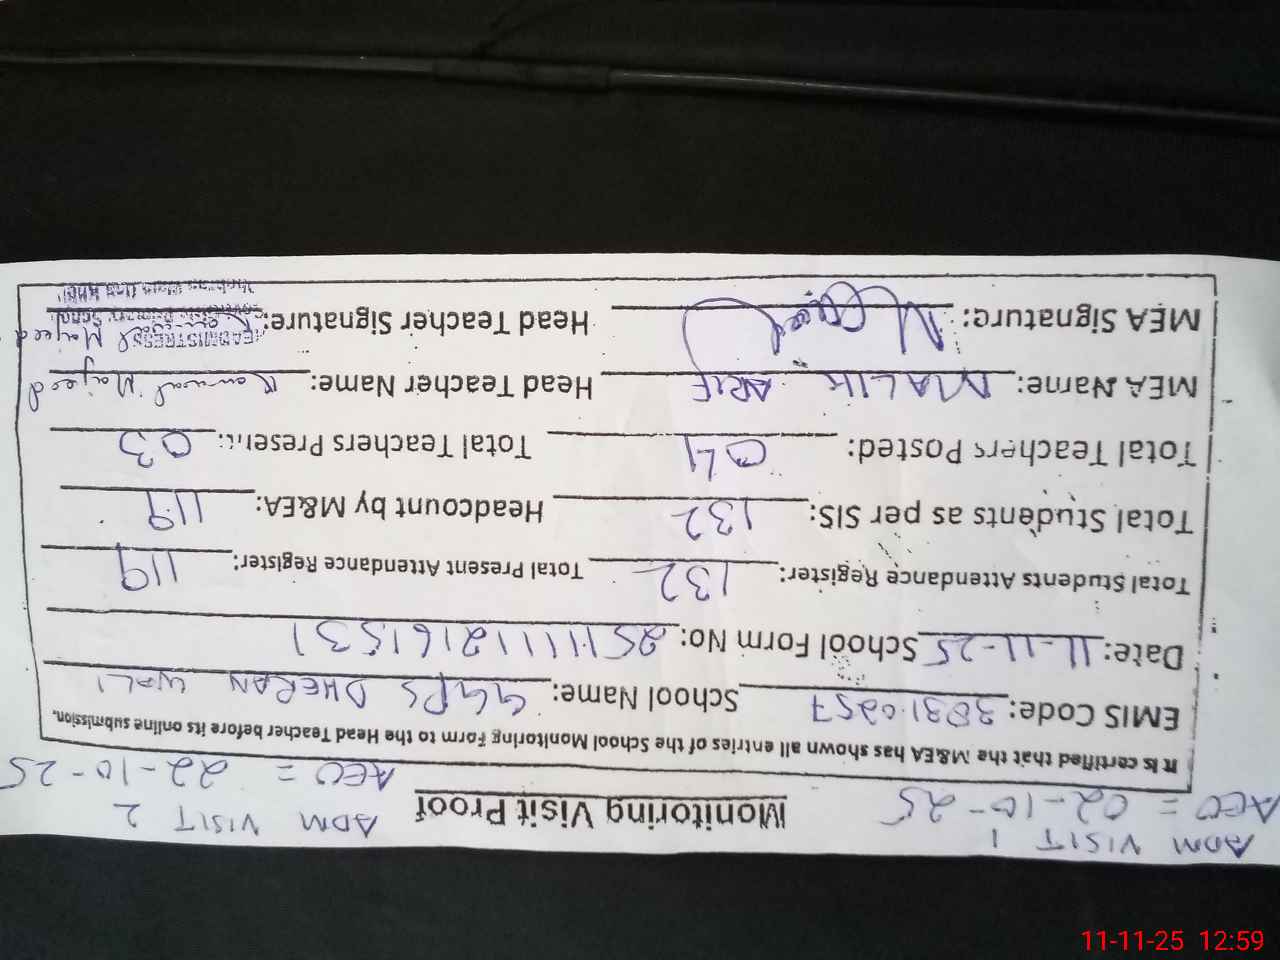 ADM VISIT 1
AEO = 02-10-25
ADM VISIT 2
AEO = 22-10-25
Monitoring Visit Proof
It is certified that the M&EA has shown all entries of the School Monitoring Form to the Head Teacher before its online submission.
EMIS Code: 38310257 School Name: GGPS DHERAN WALI
Date: 11-11-25 School Form No: 25111112161531
Total Students Attendance Register: 132 Total Present Attendance Register: 119
Total Students as per SIS: 132 Headcount by M&EA: 119
Total Teachers Posted: 04 Total Teachers Present: 03
MEA Name: MALIK ARIF Head Teacher Name: Kanwal Majeed
MEA Signature: Head Teacher Signature: Kanwal Majeed
HEADMISTRESS
Primary School
11-11-25 12:59